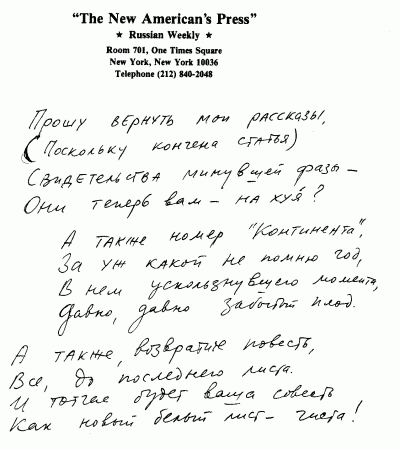 "The New American's Press"
★ Russian Weekly ★
Room 701, One Times Square
New York, New York 10036
Telephone (212) 840-2048
Прошу вернуть мои рассказы,
(Поскольку кончена статья)
Свидетельства минувшей фазы –
Они теперь вам – на хуя́?
А также номер "Континента",
За уж какой не помню год,
В нем ускользнувшего момента,
Давно, давно забытый плод.
А также, возвратите повесть,
Все, до последнего листа.
И тотчас будет ваша совесть
Как новый белый лист – чиста!